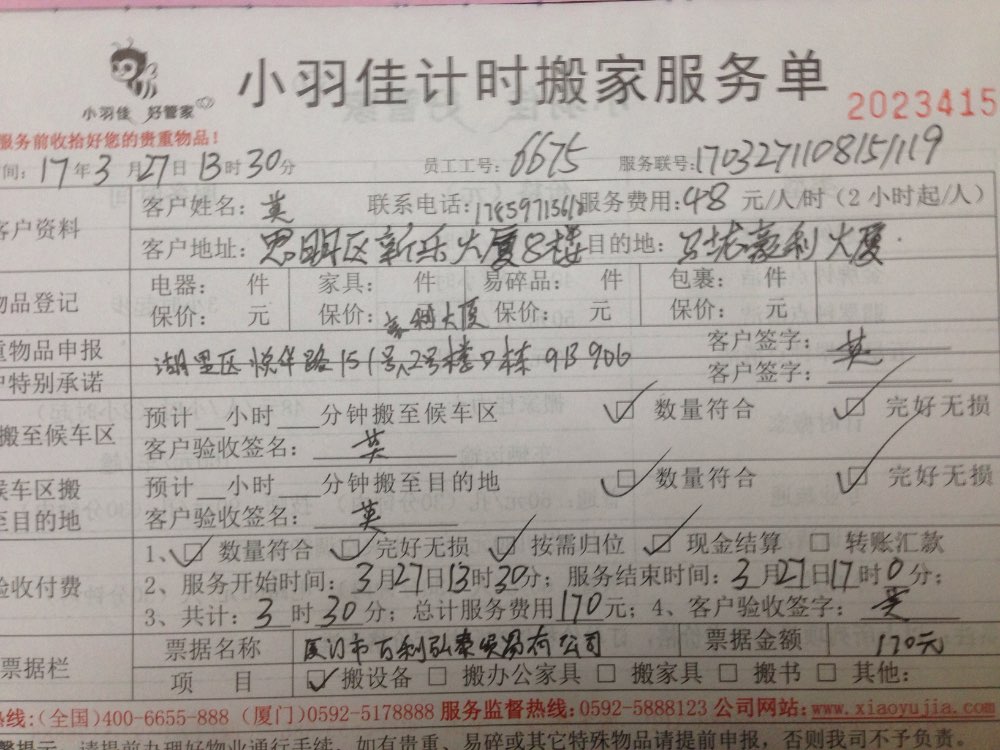 小羽佳计时搬家服务单
小羽佳 好管家
2023415
服务前收拾好您的贵重物品!
间:17年3月27日13时30分 员工工号:6675 服务联号:1703271108151119
客户资料
客户姓名:英 联系电话: 服务费用:48元/人/时(2小时起/人)
客户地址:思明区新乐大厦8楼 目的地: 豪利大厦
物品登记
电器: 件 家具: 件 易碎品: 件 包裹: 件
保价: 元 保价: 元 保价: 元 保价: 元
豪利大厦
重物品申报 客户签字:英
湖里区悦华路151号2号楼 栋 9B 906
户特别承诺 客户签字:
搬至候车区
预计__小时___分钟搬至候车区 ☑ 数量符合 ☑ 完好无损
客户验收签名:英
候车区搬至目的地
预计__小时___分钟搬至目的地 ☑ 数量符合 ☑ 完好无损
客户验收签名:英
验收付费
1、☑ 数量符合 ☑ 完好无损 ☑ 按需归位 ☑ 现金结算 □ 转账汇款
2、服务开始时间:3月27日13时30分;服务结束时间:3月27日17时0分;
3、共计:3时30分;总计服务费用170元;4、客户验收签字:英
票据栏
票据名称 厦门市百利弘泰贸易有限公司 票据金额 170元
项 目 ☑搬设备 □ 搬办公家具 □ 搬家具 □ 搬书 □ 其他:
热线:(全国)400-6655-888 (厦门)0592-5178888 服务监督热线:0592-5888123 公司网站:www.xiaoyujia.com
馨提示 请提前办理好物业通行手续。如有贵重、易碎或其它特殊物品请提前申报,否则我司不予负责。